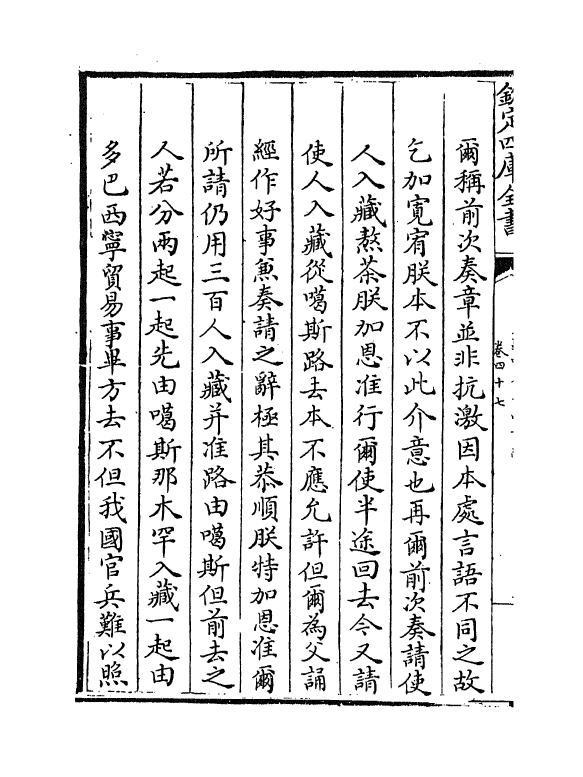 欽定四庫全書
卷四十七
爾稱前次奏章並非抗激因本處言語不同之故
乞加寛宥朕本不以此介意也再爾前次奏請使
人入藏熬茶朕加恩准行爾使半途回去今又請
使人入藏從噶斯路去本不應允許但爾為父誦
經作好事兼奏請之辭極其恭順朕特加恩准爾
所請仍用三百人入藏并准路由噶斯但前去之
人若分兩起一起先由噶斯那木罕入藏一起由
多巴西寧貿易事畢方去不但我國官兵難以照